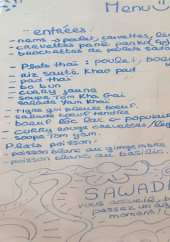 Menu
- entrées:
- nems → poulet, crevettes,
- crevettes pané panko(
- brochettes de poulet sata
- Plats thaï : poulet, boeu
- riz sauté Khao pad
- pad thaï
- bo bun
- curry jaune
- soupe Tom Kha Gai
- salade Yam
- tigre qui pleure boeuf.
- salade boeuf tendre
- boeuf loc lac
- curry rouge crevettes/
- soupe Tom yam.
Plats poisson:
- poisson blanc au gingembre
- poisson blanc au basilic.
SAWADE
vous souhaite
passez un
moment!